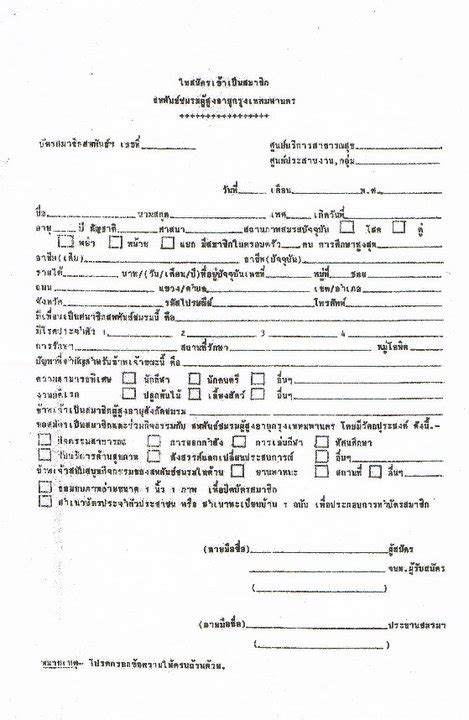 ใบสมัครเข้าเป็นสมาชิก
สหพันธ์ชมรมผู้สูงอายุกรุงเทพมหานคร
++++++++++++++++++
บัตรสมาชิกสหพันธ์ฯ เลขที่
ศูนย์บริการสาธารณสุข
ศูนย์ประสานงาน,กลุ่ม
วันที่ เดือน พ.ศ.
ชื่อ นามสกุล เพศ เกิดวันที่
อายุ ปี สัญชาติ ศาสนา สถานภาพสมรสปัจจุบัน โสด คู่
หย่า หม้าย แยก มีสมาชิกในครอบครัว คน การศึกษาสูงสุด
อาชีพ(เดิม) อาชีพ(ปัจจุบัน)
รายได้ บาท/(วัน/เดือน/ปี)ที่อยู่ปัจจุบันเลขที่ หมู่ที่ ซอย
ถนน แขวง/ตำบล เขต/อำเภอ
จังหวัด รหัสไปรษณีย์ โทรศัพท์
มีเพื่อนเป็นสมาชิกสหพันธ์ชมรมนี้ คือ
มีโรคประจำตัว 1 2 3 4
การรักษา สถานที่รักษา หมู่โลหิต
ปัญหาที่สำคัญสำหรับข้าพเจ้าขณะนี้ คือ
ความสามารถพิเศษ นักกีฬา นักดนตรี อื่นๆ
งานอดิเรก ปลูกต้นไม้ เลี้ยงสัตว์ อื่นๆ
ข้าพเจ้าเป็นสมาชิกผู้สูงอายุสังกัดชมรม
ขอสมัครเป็นสมาชิกและร่วมกิจกรรมกับ สหพันธ์ชมรมผู้สูงอายุกรุงเทพมหานคร โดยมีวัตถุประสงค์ ดังนี้.-
กิจกรรมสาธารณะ การออกกำลัง การเล่นกีฬา ทัศนศึกษา
รับบริการด้านสุขภาพ สังสรรค์แลกเปลี่ยนประสบการณ์ อื่นๆ
ข้าพเจ้าสนับสนุนกิจกรรมของสหพันธ์ชมรมในด้าน ยานพาหนะ สถานที่ อื่นๆ
ขอมอบภาพถ่ายขนาด 1 นิ้ว 1 ภาพ เพื่อปิดบัตรสมาชิก
สำเนาบัตรประจำตัวประชาชน หรือ สำเนาทะเบียนบ้าน 1 ฉบับ เพื่อประกอบการทำบัตรสมาชิก
(ลายมือชื่อ) ผู้สมัคร
จนท.ผู้รับสมัคร
( )
(ลายมือชื่อ) ประธานชมรมฯ
( )
หมายเหตุ- โปรดกรอกข้อความให้ครบถ้วนด้วย.